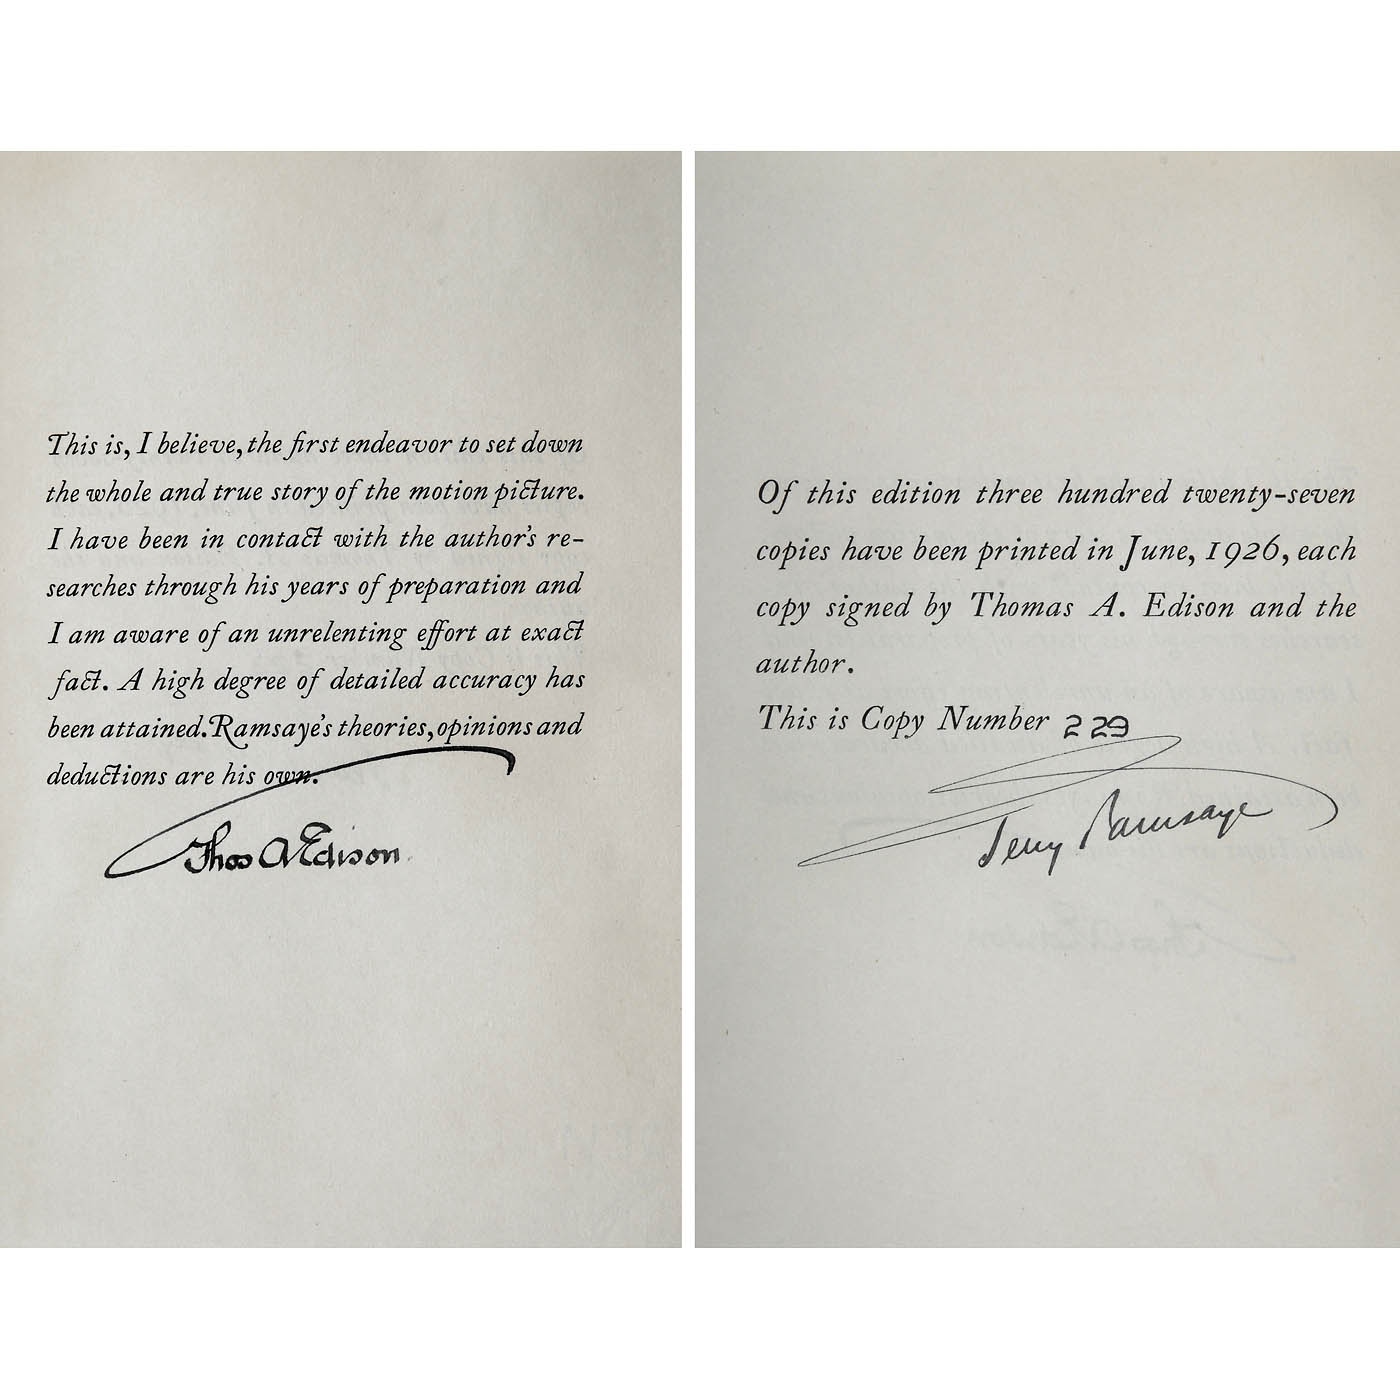 This is, I believe, the first endeavor to set down
the whole and true story of the motion picture.
I have been in contact with the author's re-
searches through his years of preparation and
I am aware of an unrelenting effort at exact
fact. A high degree of detailed accuracy has
been attained. Ramsaye's theories, opinions and
deductions are his own.
Thos A Edison
Of this edition three hundred twenty-seven
copies have been printed in June, 1926, each
copy signed by Thomas A. Edison and the
author.
This is Copy Number 229
Terry Ramsaye